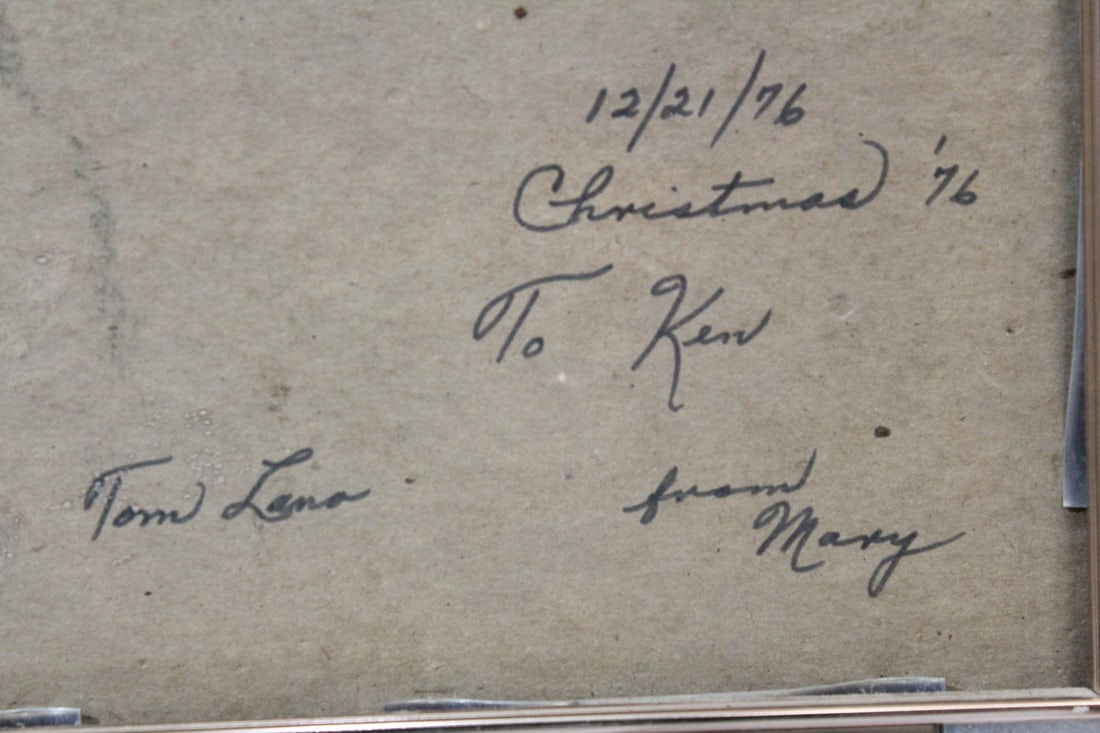 12/21/76
Christmas '76
To Ken
Tom Lano
from
Mary